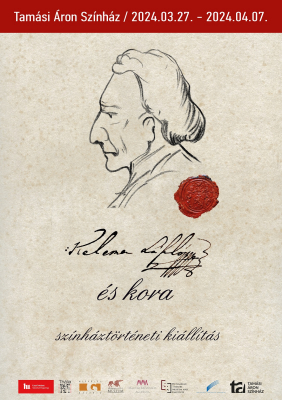 Tamási Áron Színház / 2024.03.27. - 2024.04.07.
Kelemen László
és kora
színháztörténeti kiállítás
TAMÁSI
ÁRON
SZÍNHÁZ